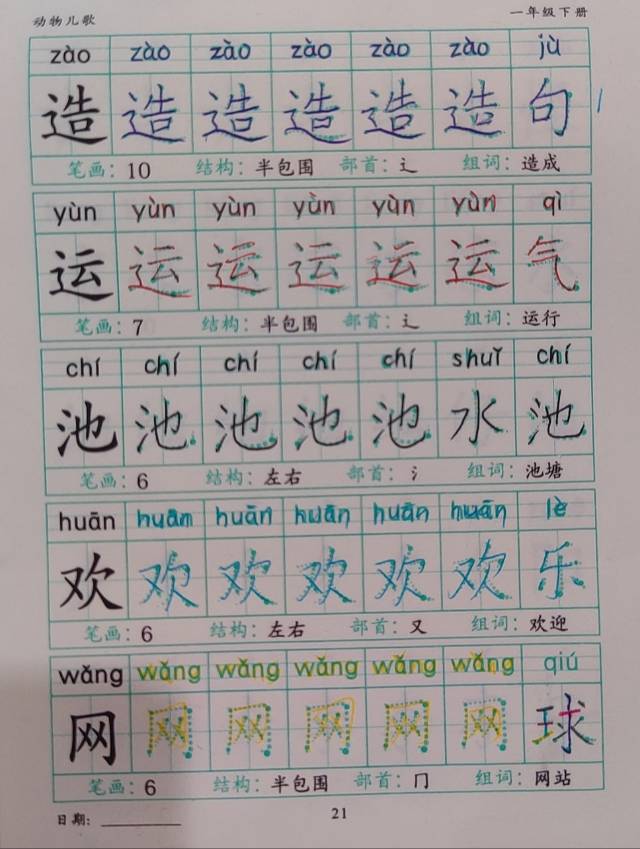 动物儿歌 一年级下册
zào zào zào zào zào zào jù
造 造 造 造 造 造 句
笔画：10 结构：半包围 部首：辶 组词：造成
yùn yùn yùn yùn yùn yùn qì
运 运 运 运 运 运 气
笔画：7 结构：半包围 部首：辶 组词：运行
chí chí chí chí chí shuǐ chí
池 池 池 池 池 水 池
笔画：6 结构：左右 部首：氵 组词：池塘
huān huān huān huān huān huān lè
欢 欢 欢 欢 欢 欢 乐
笔画：6 结构：左右 部首：又 组词：欢迎
wǎng wǎng wǎng wǎng wǎng wǎng qiú
网 网 网 网 网 网 球
笔画：6 结构：半包围 部首：冂 组词：网站
日期：
21